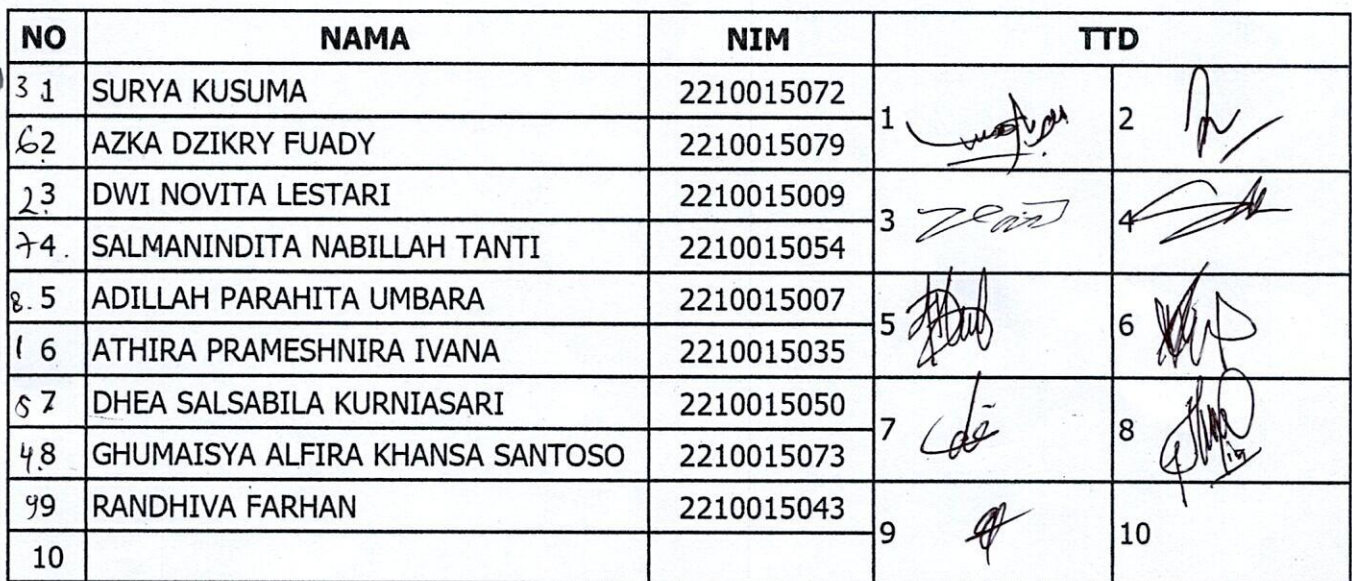 NO NAMA NIM TTD
3 1 SURYA KUSUMA 2210015072
1 2
6 2 AZKA DZIKRY FUADY 2210015079
2. 3 DWI NOVITA LESTARI 2210015009
3 4
7 4. SALMANINDITA NABILLAH TANTI 2210015054
8. 5 ADILLAH PARAHITA UMBARA 2210015007
5 6
1 6 ATHIRA PRAMESHNIRA IVANA 2210015035
5 7 DHEA SALSABILA KURNIASARI 2210015050
7 8
4. 8 GHUMAISYA ALFIRA KHANSA SANTOSO 2210015073
9 9 RANDHIVA FARHAN 2210015043
9 10
10